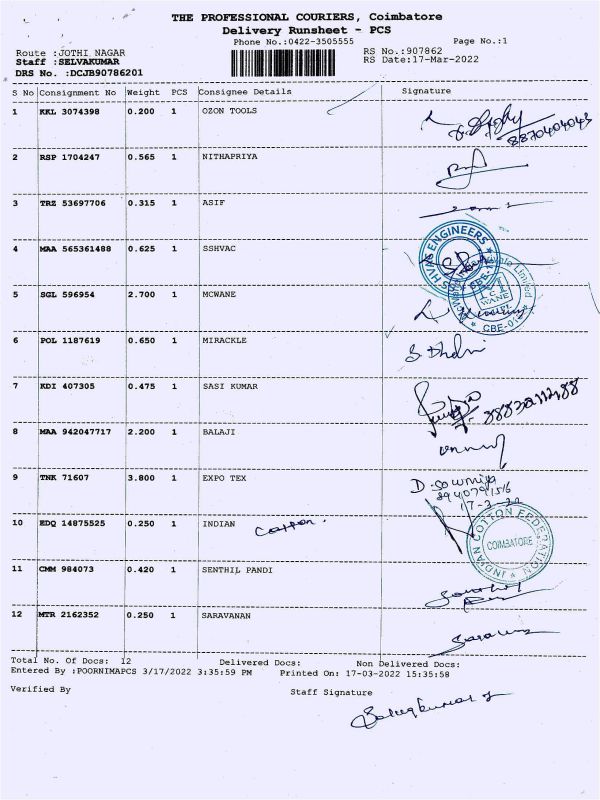 THE PROFESSIONAL COURIERS, Coimbatore
Delivery Runsheet - PCS
Phone No.:0422-3505555 Page No.:1
Route :JOTHI NAGAR RS No.:907862
Staff :SELVAKUMAR RS Date:17-Mar-2022
DRS No. :DCJB90786201
S No Consignment No Weight PCS Consignee Details Signature
1 KKL 3074398 0.200 1 OZON TOOLS
8870404043
2 RSP 1704247 0.565 1 NITHAPRIYA
3 TRZ 53697706 0.315 1 ASIF
4 MAA 565361488 0.625 1 SSHVAC
SSHVAC ENGINEERS
5 SGL 596954 2.700 1 MCWANE
CBE-01
6 POL 1187619 0.650 1 MIRACKLE
S Dhdni
7 KDI 407305 0.475 1 SASI KUMAR
8 MAA 942047717 2.200 1 BALAJI
9 TNK 71607 3.800 1 EXPO TEX
D. Sowmiya
8940791516
17-3-22
10 EDQ 14875525 0.250 1 INDIAN Cotton.
INDIAN COTTON FEDERATION
COIMBATORE
11 CMM 984073 0.420 1 SENTHIL PANDI
12 MTR 2162352 0.250 1 SARAVANAN
Total No. Of Docs: 12 Delivered Docs: Non Delivered Docs:
Entered By :POORNIMAPCS 3/17/2022 3:35:59 PM Printed On: 17-03-2022 15:35:58
Verified By Staff Signature